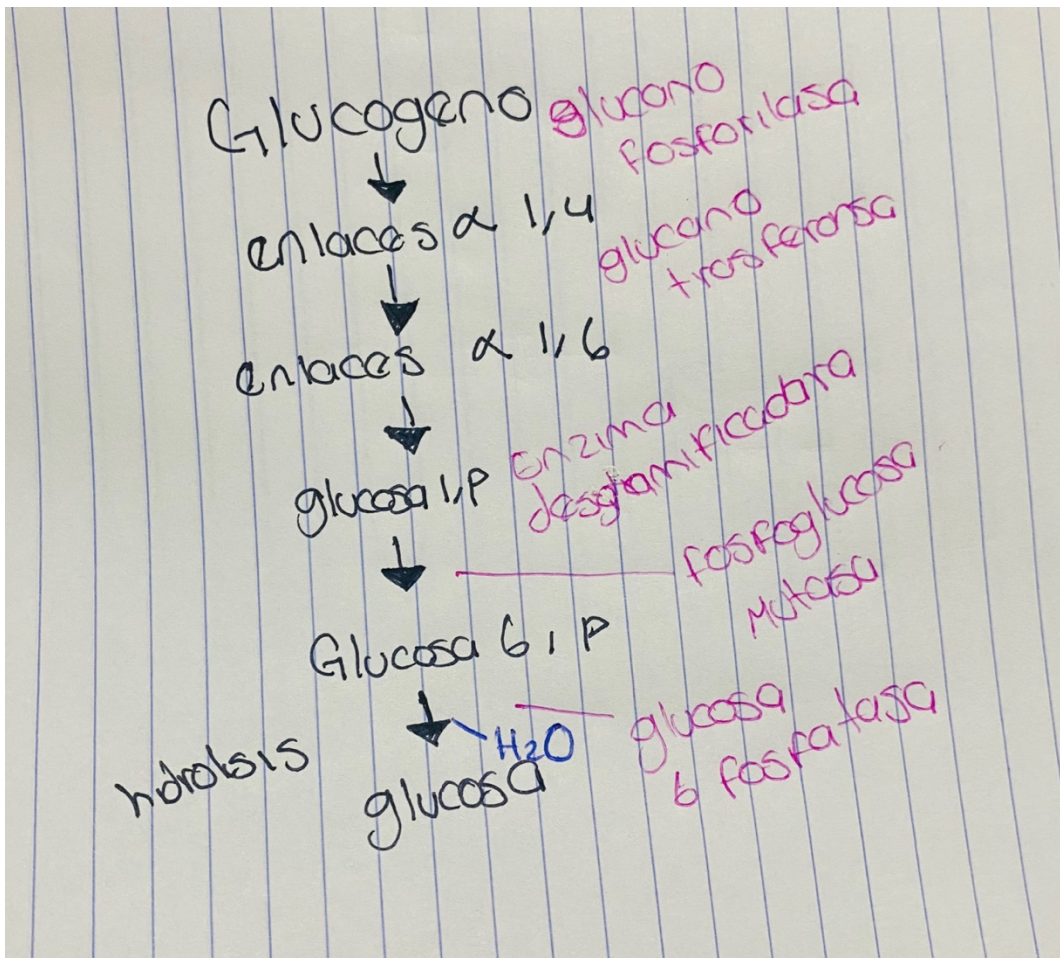 Glucogeno
glucano
fosforilasa
enlaces α 1,4
glucano
trasferansa
enlaces α 1,6
enzima
desgramificadora
glucosa 1,P
fosfoglucosa
Mutasa
Glucosa 6, P
glucosa
6 fosfatasa
H₂O
hidrolsis
glucosa